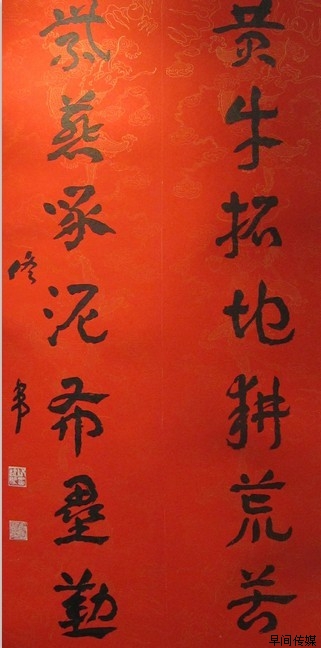 黄牛拓地耕荒苦
紫燕啄泥布垒勤
佟韦
早间传媒